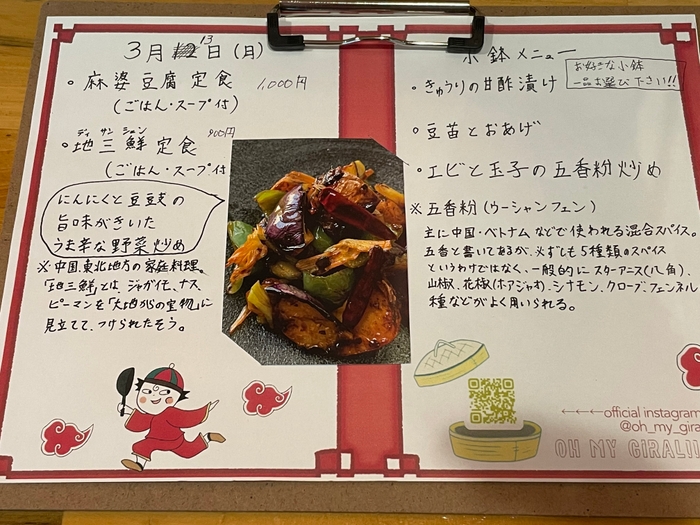 3月13日(月)
・麻婆豆腐定食 1,000円
(ごはん・スープ付)
ディ サン シェン
・地三鮮定食 900円
(ごはん・スープ付
にんにくと豆豉の
旨味がきいた
うま辛な野菜炒め
※中国、東北地方の家庭料理。
「地三鮮」とは、ジャガイモ、ナス、
ピーマンを「大地からの宝物」に
見立てて、つけられたそう。
小鉢メニュー
お好きな小鉢
一品お選び下さい!!
・きゅうりの甘酢漬け
・豆苗とおあげ
・エビと玉子の五香粉炒め
※五香粉(ウーシャンフェン)
主に中国・ベトナムなどで使われる混合スパイス。
五香と書いてあるが、必ずしも5種類のスパイス
というわけではなく、一般的にスターアニス(八角)、
山椒、花椒(ホアジャオ)、シナモン、クローブ、フェンネル
種などがよく用いられる。
←←←official instagram
@oh_my_gira
OH MY GIRA!!!